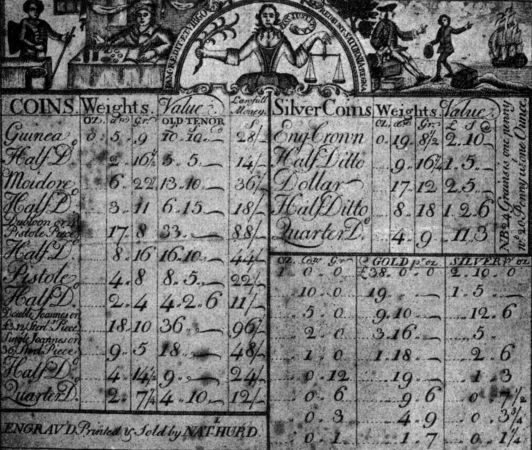 COINS. Weights. Value. Lawfull Money.
OZ. dwt Grs OLD TENOR
Guinea 0. 5. 9 10. 10. 28/
Half Do 2. 16½ 5. 5. 14/
Moidore 6. 22½ 13. 10 36/
Half Do 3. 11 6. 15 18/
Dubloon or 4 Pistole Piece 17. 8 33. 88/
Half Do 8. 16 16. 10 44/
Pistole 4. 8 8. 5. 22/
Half Do 2. 4 4. 2. 6 11/
Double Joannes or
£3.12 Sterl Piece 18. 10 36. 96/
Single Joannes or
36/ Sterl Piece 9. 5 18. 48/
Half Do 4. 14½ 9. 24/
Quarter Do 2. 7¼ 4. 10. 12/
ENGRAV'D Printed & Sold by NATHL HURD.
Silver Coins Weights. Value
Eng. Crown 0. 19. 8½ 2. 10.
Half Ditto 9. 16¼ 1. 5.
Dollar 17. 12 2. 5.
Half Ditto 8. 18 1. 2. 6
Quarter Do 4. 9. 11. 3
NB 24 Grains one penny
OZ. Gr GOLD pr oz SILVER pr oz
1. 0. 0 £38. 0. 0 2. 10. 0
10. 0 19. 1. 5.
5. 0 9. 10. 12. 6
2. 0 3. 16. 5
1. 0 1. 18. 2. 6
0. 12 19. 1. 3
0. 6 9. 6 0. 7½
0. 3 4. 9 0. 3¾
0. 1 1. 7 0. 1¼